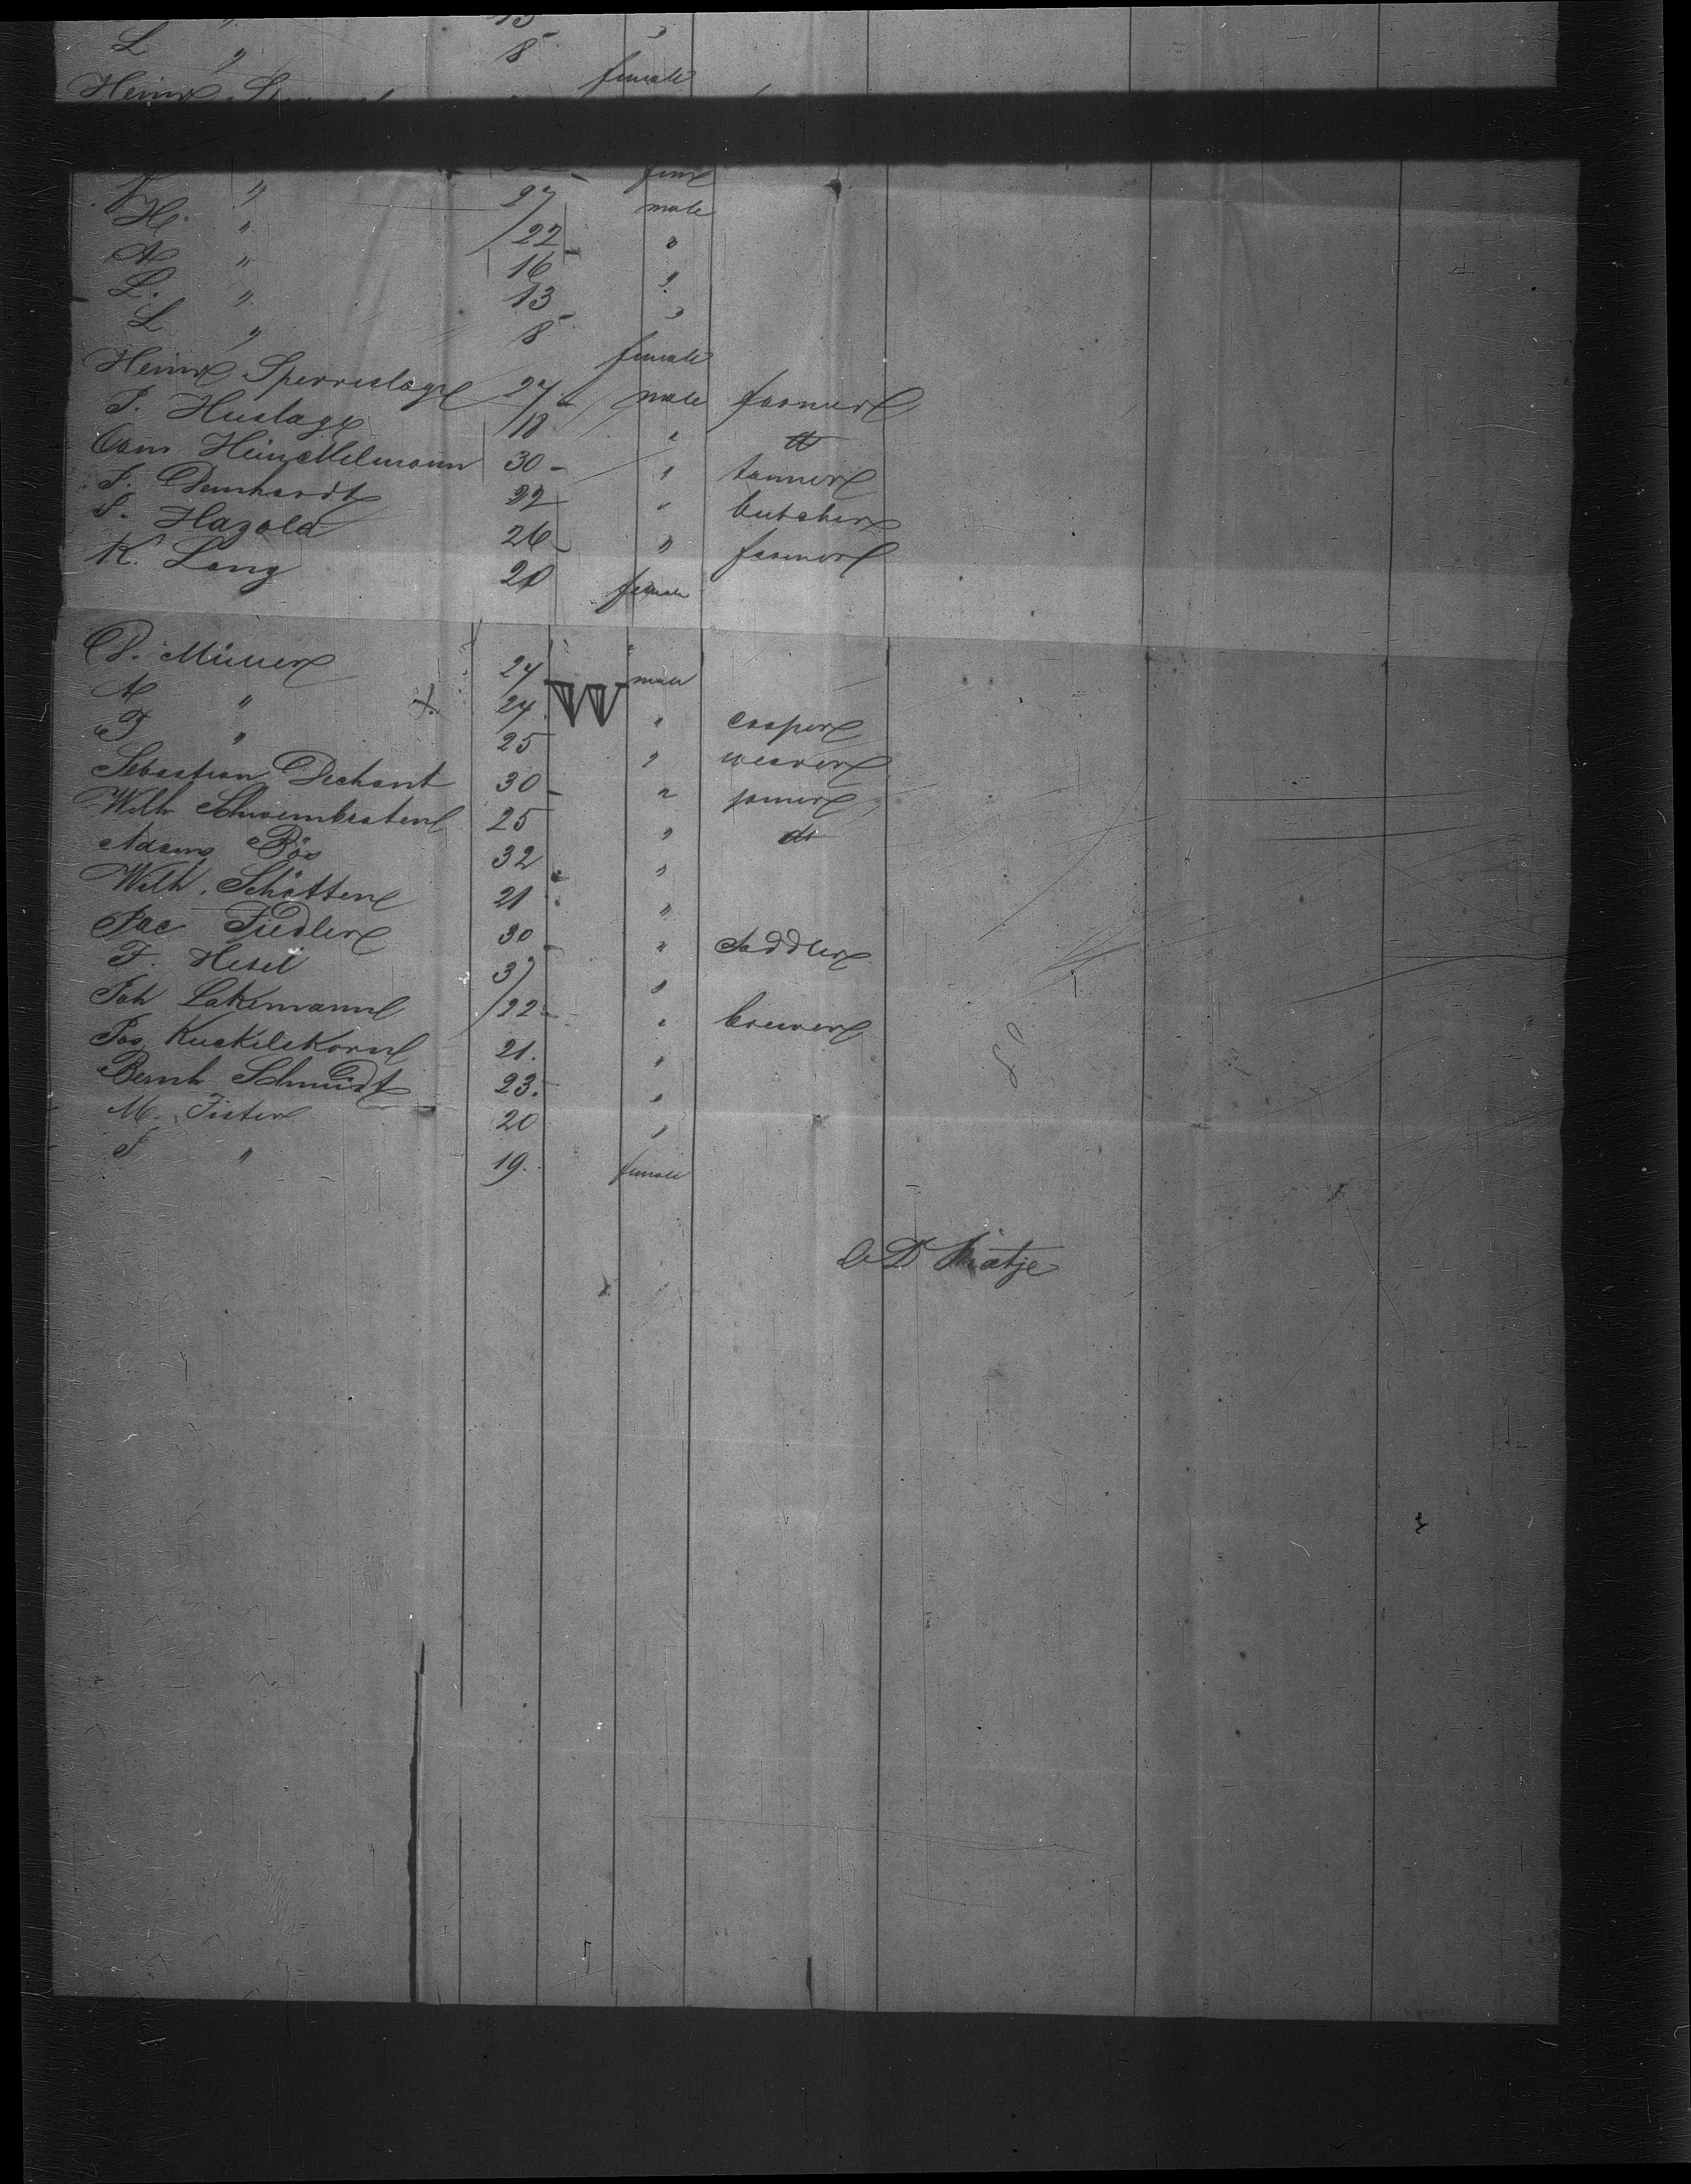 L " 8 female
Heinr
" fem
H. " 27 male
A " 22 "
L. " 16 "
L " 13 "
8 female
Heinr Sperreslage 24 male farmer
J. Huslage 18 " do
Conr Heinekelmann 30 " tanner
J. Denhardt 22 " butcher
S. Hagold 26 " farmer
K. Lang 20 female
D. Müller 24 male
A " + 24 W " cooper
F " 25 " weaver
Sebastian Dechant 30 " joiner
Wilh Schweinbraten 25 " do
Adam Bös 32 "
Wilh. Schötten 21 "
Jac Fiedler 30 " saddler
F. Hesel 37 "
Joh Lakemann 22 " brewer
Jos Kuckelkorn 21. "
Bernh Schmidt 23. "
M. Fister 20 "
S " 19. female